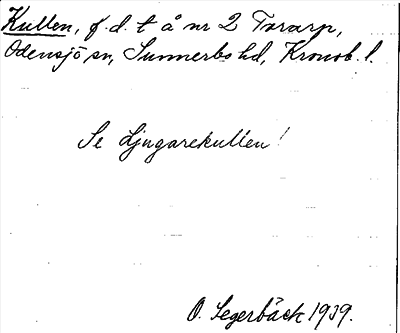 Kullen, f.d. t å nr 2 Torarp,
Odensjö sn, Sunnerbo hd, Kronob. l.
Se Ljugarekullen!
O. Segerbäck 1939.